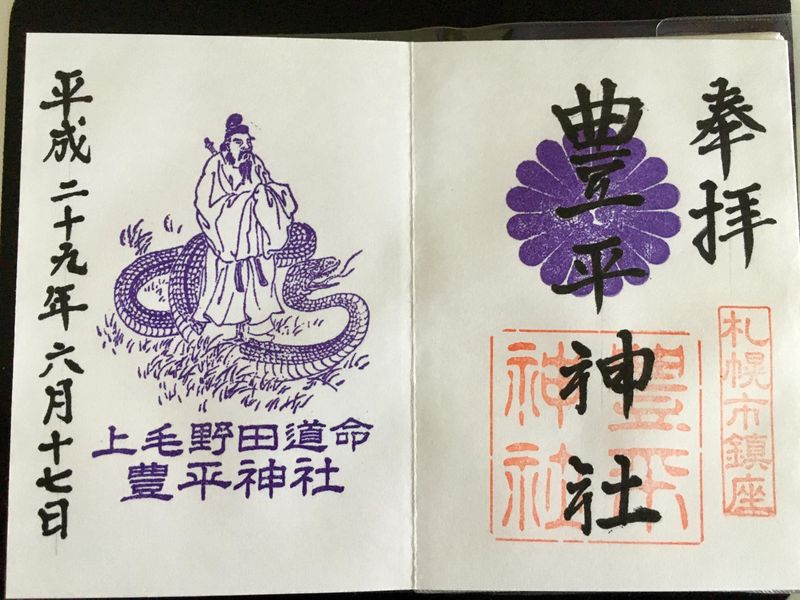 奉拝
札幌市鎮座
豊平神社
豊平神社
上毛野田道命
豊平神社
平成二十九年六月十七日